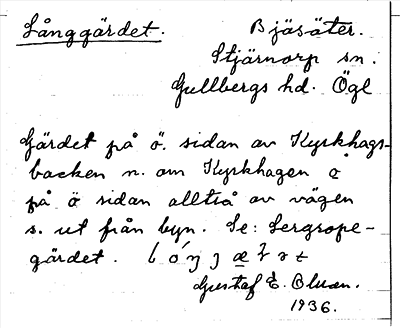 Långgärdet. Bjäsäter.
Stjärnorp sn.
Gullbergs hd. Ögl
Gärdet på ö. sidan av Kyrkhags-
backen n. om Kyrkhagen o
på ö sidan alltså av vägen
s. ut från byn. Se: Sergsope-
gärdet.
Gustaf E. Bluan.
1936.